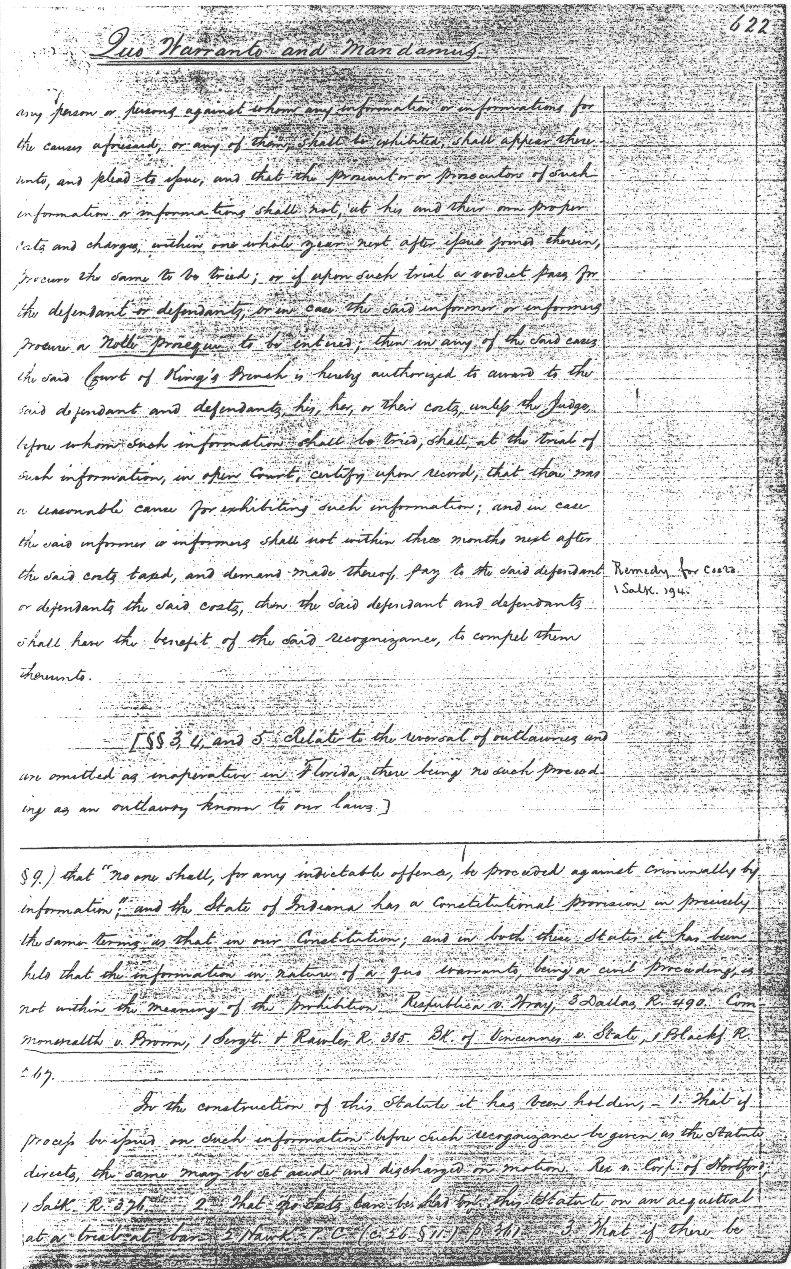 622
Quo Warranto and Mandamus.
any person or persons against whom any information or informations for
the causes aforesaid, or any of them, shall be exhibited, shall appear there-
unto, and plead to issue, and that the prosecutor or prosecutors of such
information or informations shall not, at his and their own proper
costs and charges, within one whole year next after issue joined therein,
procure the same to be tried; or if upon such trial a verdict pass for
the defendant or defendants, or in case the said informer or informers
procure a Nolle prosequi to be entered; then in any of the said cases
the said Court of King's Bench is hereby authorized to award to the
said defendant and defendants, his, her, or their costs, unless the Judge
before whom such information shall be tried, shall, at the trial of
such information, in open Court, certify upon record, that there was
a reasonable cause for exhibiting such information; and in case
the said informer or informers shall not within three months next after
the said costs taxed, and demand made thereof, pay to the said defendant
or defendants the said costs, then the said defendant and defendants
shall have the benefit of the said recognizance, to compel them
thereunto.
Remedy for costs.
1 Salk. 194.
[§§ 3, 4, and 5 Relate to the reversal of outlawries and
are omitted as inoperative in Florida, there being no such proceed-
ing as an outlawry known to our laws.]
§ 9.) that "no one shall, for any indictable offence, be proceeded against criminally by
information"; and the State of Indiana has a Constitutional provision in precisely
the same terms as that in our Constitution; and in both these States it has been
held that the information in nature of a quo warranto, being a civil proceeding, is
not within the meaning of the prohibition. Respublica v. Wray, 3 Dallas, R. 490. Com-
monwealth v. Brown, 1 Serg't. & Rawles R. 385. Bk. of Vincennes v. State, 1 Blackf. R.
267.
In the construction of this Statute it has been holden, - 1. That if
process be issued on such information before such recognizance be given as the Statute
directs, the same may be set aside and discharged on motion. Rex v. Corp. of Hertford,
1 Salk. R. 376. 2. That no costs can be had on this Statute on an acquittal
at a trial at bar. 2 Hawk. P. C. (c. 26 § 11.) p. 361. 3. That if there be